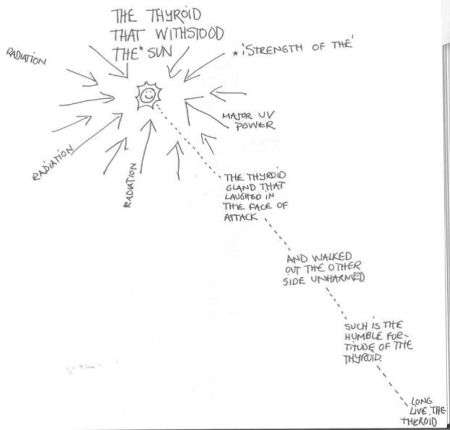 THE THYROID
THAT WITHSTOOD
THE* SUN
* 'STRENGTH OF THE'
RADIATION
MAJOR UV
POWER
RADIATION
RADIATION
THE THYROID
GLAND THAT
LAUGHED IN
THE FACE OF
ATTACK
AND WALKED
OUT THE OTHER
SIDE UNHARMED
SUCH IS THE
HUMBLE FOR-
TITUDE OF THE
THYROID.
LONG
LIVE THE
THEROID